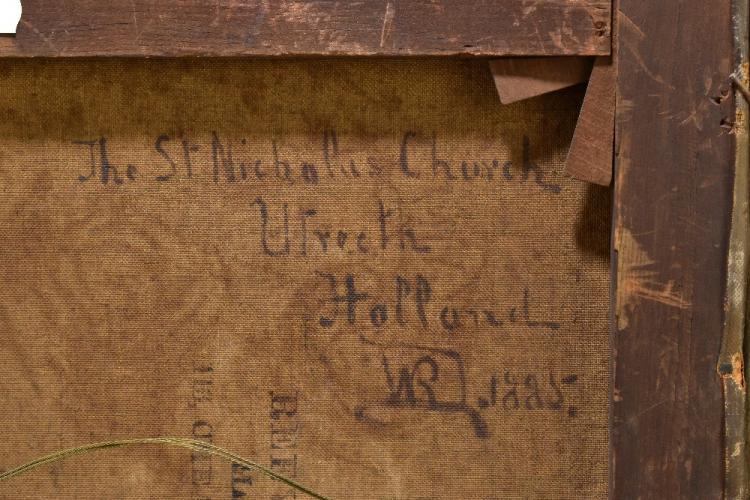 The St Nicholas Church
Utrecth
Holland
WR .1885.